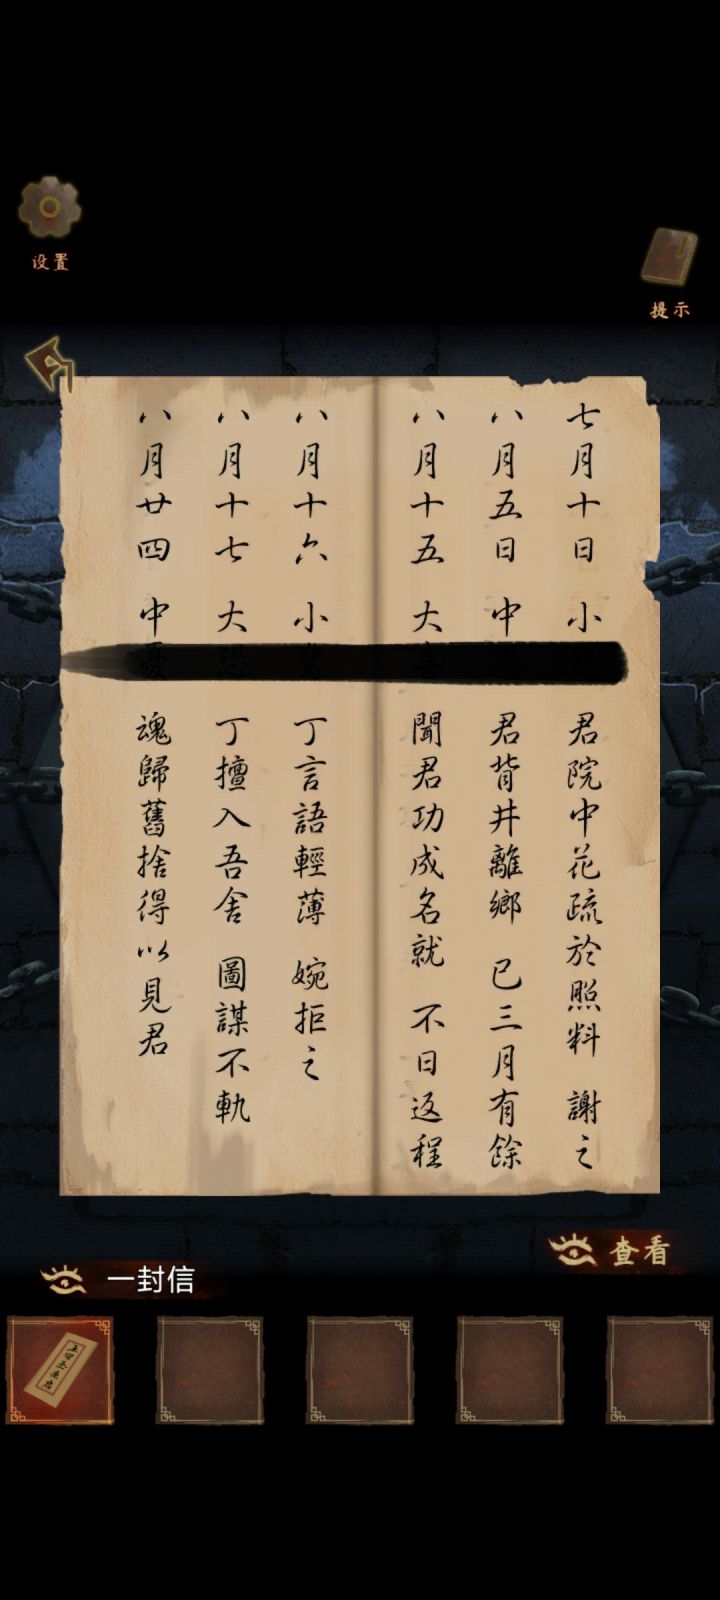 设置
提示
七月十日 小 君院中花疏於照料 謝之
八月五日 中 君背井離鄉 已三月有餘
八月十五 大喜 聞君功成名就 不日返程
八月十六 小 丁言語輕薄 婉拒之
八月十七 大 丁擅入吾舍 圖謀不軌
八月廿四 中憂 魂歸舊捨得以見君
查看
一封信